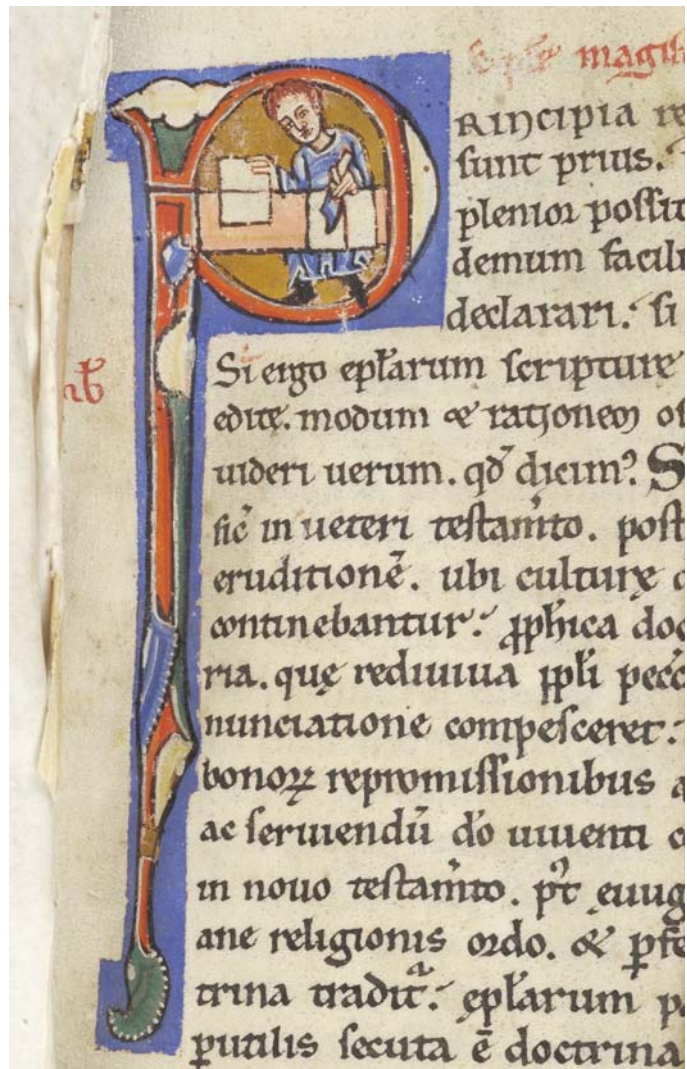 magist
PRINCIPIA re
sunt prius.
plenior possit
demum facili
declarari. si
Si ergo ep̄larum scripture
edite. modum & rationem os
uideri uerum. qd̄ dicim᾽? S
sic̄ in ueteri testam̄to. post
eruditionē. ubi culturę
continebantur. ꝓphica doc
ria. quę rediuiua ꝓpłi pecc̄
nunciatione compesceret.
bonoꝝ repromissionibus a
ac seruiendū dō uiuenti c
in nouo testam̄to. p᾽t euug
ane religionis ordo. & ꝑfe
trina tradit᷒. ep̄larum p
ꝑutilis secuta ē doctrina